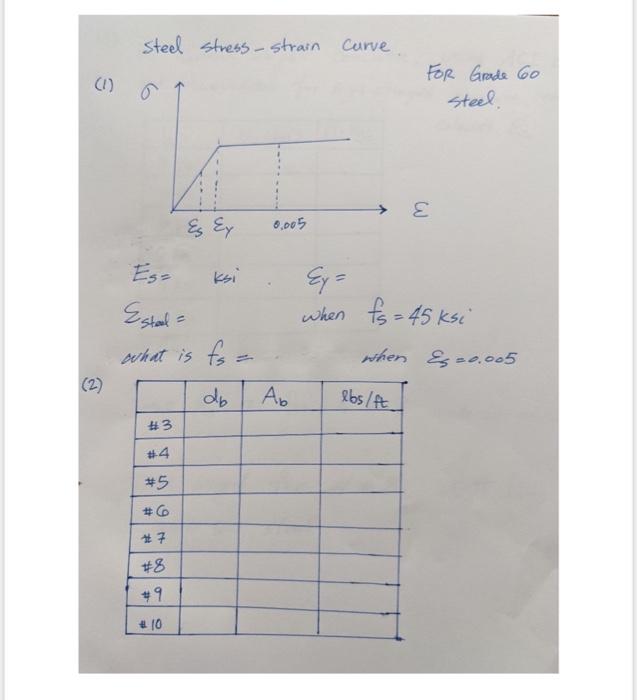 Steel stress-strain Curve.
FOR Grade 60
steel.
(1)
σ
ε
εs εy 0.005
Es= ksi. εy=
εsteel = when fs = 45 ksi
what is fs = when εs = 0.005
(2)
db Ab lbs/ft
#3
#4
#5
#6
#7
#8
#9
#10